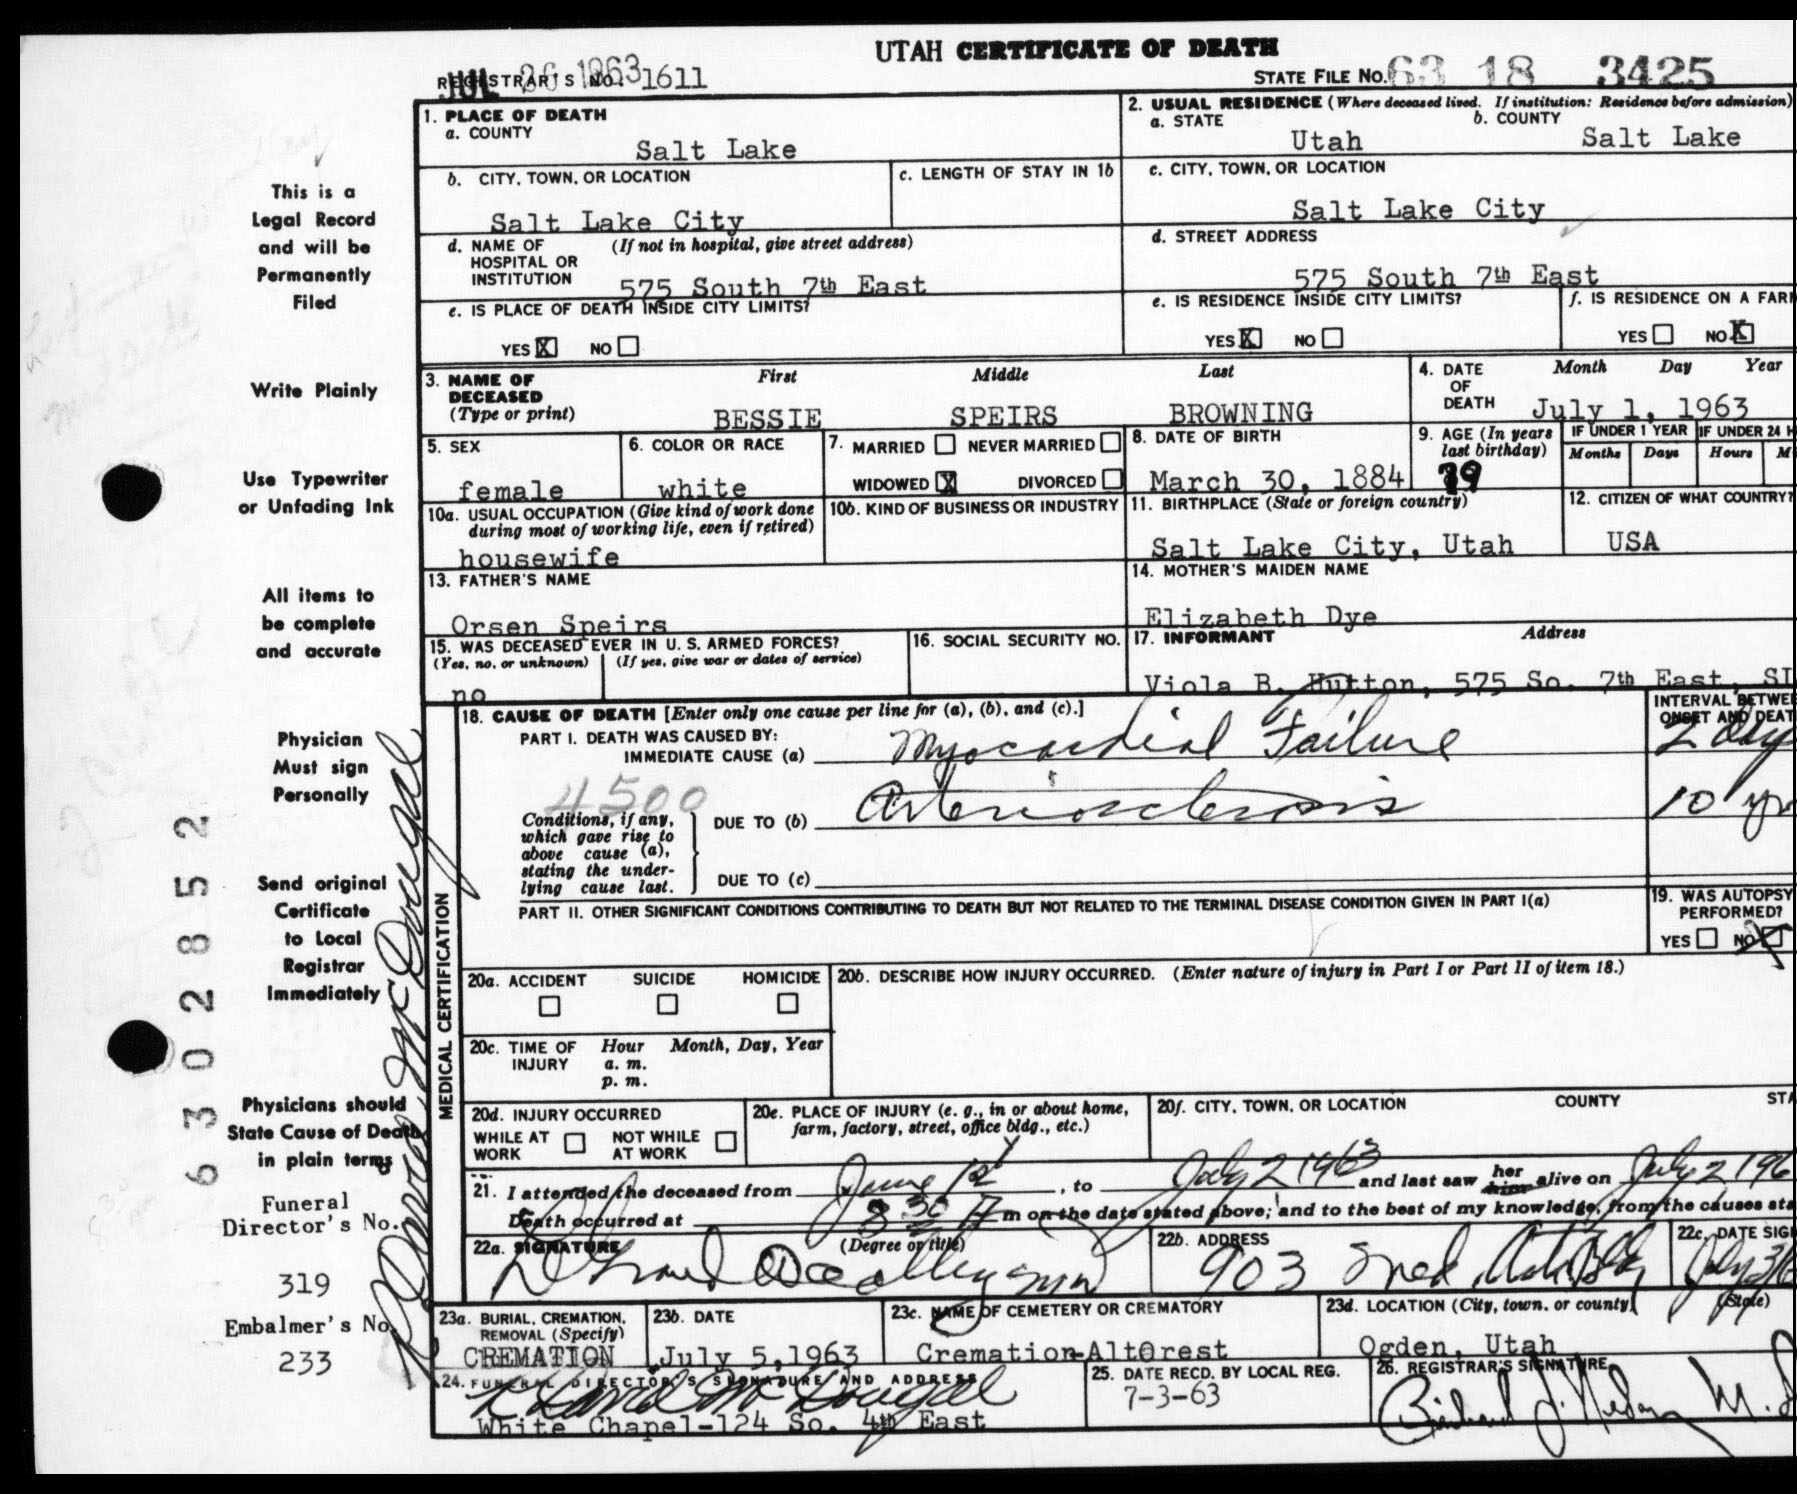 UTAH CERTIFICATE OF DEATH
JUL 26 1963
REGISTRAR'S NO. 1611
STATE FILE No. 63 18 3425
1. PLACE OF DEATH
a. COUNTY
Salt Lake
2. USUAL RESIDENCE (Where deceased lived. If institution: Residence before admission)
a. STATE b. COUNTY
Utah Salt Lake
b. CITY, TOWN, OR LOCATION
Salt Lake City
c. LENGTH OF STAY IN 1b
c. CITY, TOWN, OR LOCATION
Salt Lake City
d. NAME OF HOSPITAL OR INSTITUTION (If not in hospital, give street address)
575 South 7th East
d. STREET ADDRESS
575 South 7th East
e. IS PLACE OF DEATH INSIDE CITY LIMITS?
YES X NO
e. IS RESIDENCE INSIDE CITY LIMITS?
YES X NO
f. IS RESIDENCE ON A FAR
YES NO X
3. NAME OF DECEASED (Type or print)
First Middle Last
BESSIE SPEIRS BROWNING
4. DATE OF DEATH Month Day Year
July 1, 1963
5. SEX
female
6. COLOR OR RACE
white
7. MARRIED NEVER MARRIED
WIDOWED X DIVORCED
8. DATE OF BIRTH
March 30, 1884
9. AGE (In years last birthday)
79
IF UNDER 1 YEAR IF UNDER 24 H
Months Days Hours M
10a. USUAL OCCUPATION (Give kind of work done during most of working life, even if retired)
housewife
10b. KIND OF BUSINESS OR INDUSTRY
11. BIRTHPLACE (State or foreign country)
Salt Lake City, Utah
12. CITIZEN OF WHAT COUNTRY?
USA
13. FATHER'S NAME
Orsen Speirs
14. MOTHER'S MAIDEN NAME
Elizabeth Dye
15. WAS DECEASED EVER IN U. S. ARMED FORCES?
(Yes, no, or unknown) (If yes, give war or dates of service)
no
16. SOCIAL SECURITY NO.
17. INFORMANT Address
Viola B. Hutton, 575 So. 7th East, SL
MEDICAL CERTIFICATION
18. CAUSE OF DEATH [Enter only one cause per line for (a), (b), and (c).]
INTERVAL BETWE
ONSET AND DEAT
PART I. DEATH WAS CAUSED BY:
IMMEDIATE CAUSE (a) Myocardial Failure 2 Day
4500
Conditions, if any,
which gave rise to
above cause (a),
stating the under-
lying cause last.
DUE TO (b) Arteriosclerosis 10 yr
DUE TO (c)
PART II. OTHER SIGNIFICANT CONDITIONS CONTRIBUTING TO DEATH BUT NOT RELATED TO THE TERMINAL DISEASE CONDITION GIVEN IN PART I(a)
19. WAS AUTOPSY
PERFORMED?
YES NO X
20a. ACCIDENT SUICIDE HOMICIDE
20b. DESCRIBE HOW INJURY OCCURRED. (Enter nature of injury in Part I or Part II of item 18.)
20c. TIME OF INJURY Hour Month, Day, Year
a. m.
p. m.
20d. INJURY OCCURRED
WHILE AT WORK NOT WHILE AT WORK
20e. PLACE OF INJURY (e. g., in or about home,
farm, factory, street, office bldg., etc.)
20f. CITY, TOWN, OR LOCATION COUNTY STA
21. I attended the deceased from June 1st, to July 2 1963 and last saw her him alive on July 2 196
Death occurred at 8 30 m on the date stated above; and to the best of my knowledge, from the causes sta
22a. SIGNATURE (Degree or title)
22b. ADDRESS
903 Med. Arts Bldg
22c. DATE SIG
July 3/6
23a. BURIAL, CREMATION,
REMOVAL (Specify)
CREMATION
23b. DATE
July 5, 1963
23c. NAME OF CEMETERY OR CREMATORY
Cremation-AltOrest
23d. LOCATION (City, town, or county) (State)
Ogden, Utah
24. FUNERAL DIRECTOR'S SIGNATURE AND ADDRESS
White Chapel-124 So. 4th East
25. DATE RECD. BY LOCAL REG.
7-3-63
26. REGISTRAR'S SIGNATURE
This is a
Legal Record
and will be
Permanently
Filed
Write Plainly
Use Typewriter
or Unfading Ink
All items to
be complete
and accurate
Physician
Must sign
Personally
Send original
Certificate
to Local
Registrar
Immediately
Physicians should
State Cause of Death
in plain terms
Funeral
Director's No.
319
Embalmer's No
233
6302852